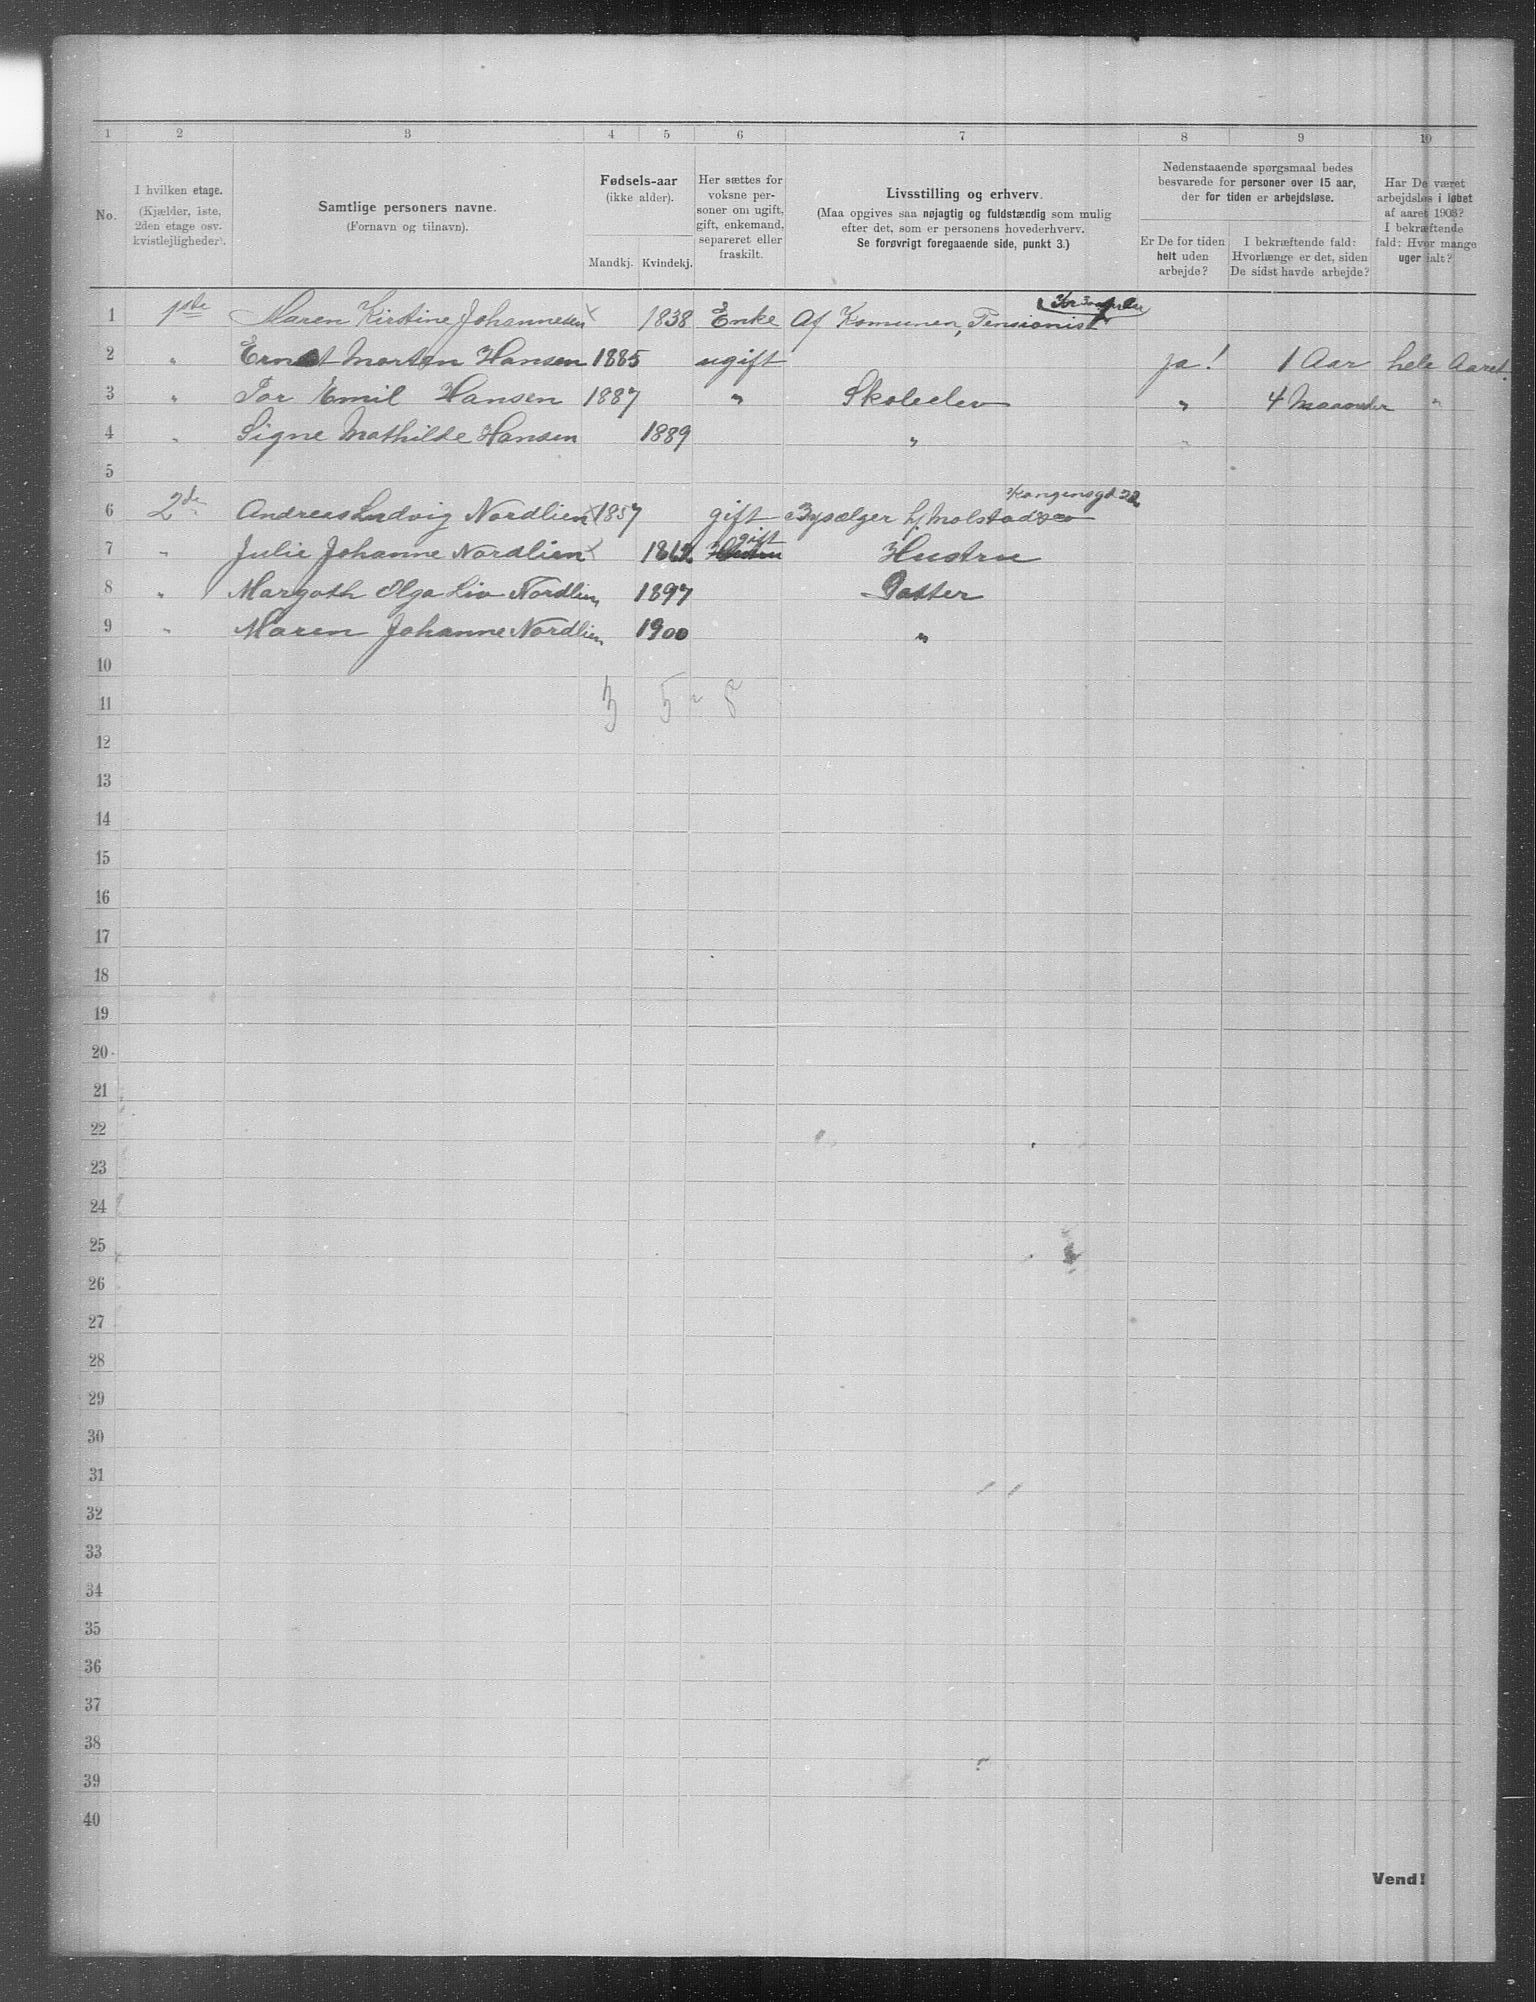 1 2 3 4 5 6 7 8 9 10
No.
I hvilken etage.
(Kjælder, 1ste,
2den etage osv.
kvistlejligheder).
Samtlige personers navne.
(Fornavn og tilnavn).
Fødsels-aar
(ikke alder).
Mandkj. Kvindekj.
Her sættes for
voksne per-
soner om ugift,
gift, enkemand,
separeret eller
fraskilt.
Livsstilling og erhverv.
(Maa opgives saa nøjagtig og fuldstændig som mulig
efter det, som er personens hovederhverv.
Se forøvrigt foregaaende side, punkt 3.)
Nedenstaaende spørgsmaal bedes
besvarede for personer over 15 aar,
der for tiden er arbejdsløse.
Er De for tiden
helt uden
arbejde?
I bekræftende fald:
Hvorlænge er det, siden
De sidst havde arbejde?
Har De været
arbejdsløs i løbet
af aaret 1903?
I bekræftende
fald: Hvor mange
uger ialt?
1 1ste Maren Kirstine Johannesen × 1838 Enke Af Komunen, Pensionist
2 " Ernst Morten Hansen 1885 ugift ja! 1 Aar hele Aaret.
3 " Tor Emil Hansen 1887 " Skoleelev " 4 Maaneder "
4 " Signe Mathilde Hansen 1889 " "
5
Kongensgd 22
6 2de Andreas Ludvig Nordlien × 1857 gift Bysælger h/ Molstad & co
gift
7 " Julie Johanne Nordlien × 1862 Hustru Hustru
8 " Margoth Olga Liv Nordlien 1897 Datter
9 " Maren Johanne Nordlien 1900 "
10
3 5 - 8
11
12
13
14
15
16
17
18
19
20
21
22
23
24
25
26
27
28
29
30
31
32
33
34
35
36
37
38
39
40
Vend!